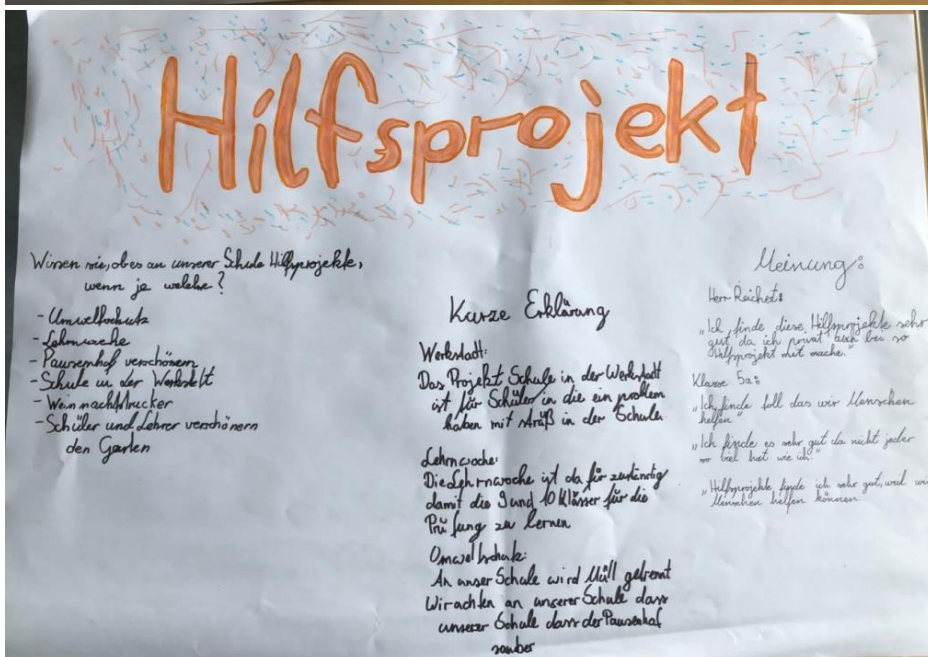 Hilfsprojekt
Wissen sie, ob es an unserer Schule Hilfsprojekte,
wenn ja welche?
- Umweltschutz
- Lehrnwoche
- Pausenhof verschönern
- Schule in der Werkstatt
- Weinnachtstrucker
- Schüler und Lehrer verschönern
den Garten
Kurze Erklärung
Werkstadt:
Das Projekt Schule in der Werkstadt
ist für Schüler in die ein problem
haben mit in der Schule.
Lehrnwoche:
Die Lehrnwoche ist da für zuständig
damit die 9 und 10 Klässer für die
Prüfung zu lernen
Umweltschutz:
An unser Schule wird Müll getrennt
Wir achten an unserer Schule dass
unserer Schule dass der Pausenhof
sauber
Meinung:
Herr Reichert:
„Ich finde diese Hilfsprojekte sehr
gut da ich privat auch bei so
Hilfsprojekt mit mache."
Klasse 5a:
„Ich finde toll das wir Menschen
helfen"
„Ich finde es sehr gut da nicht jeder
so viel hat wie ich."
„Hilfsprojekte finde ich sehr gut, weil wir
Menschen helfen können